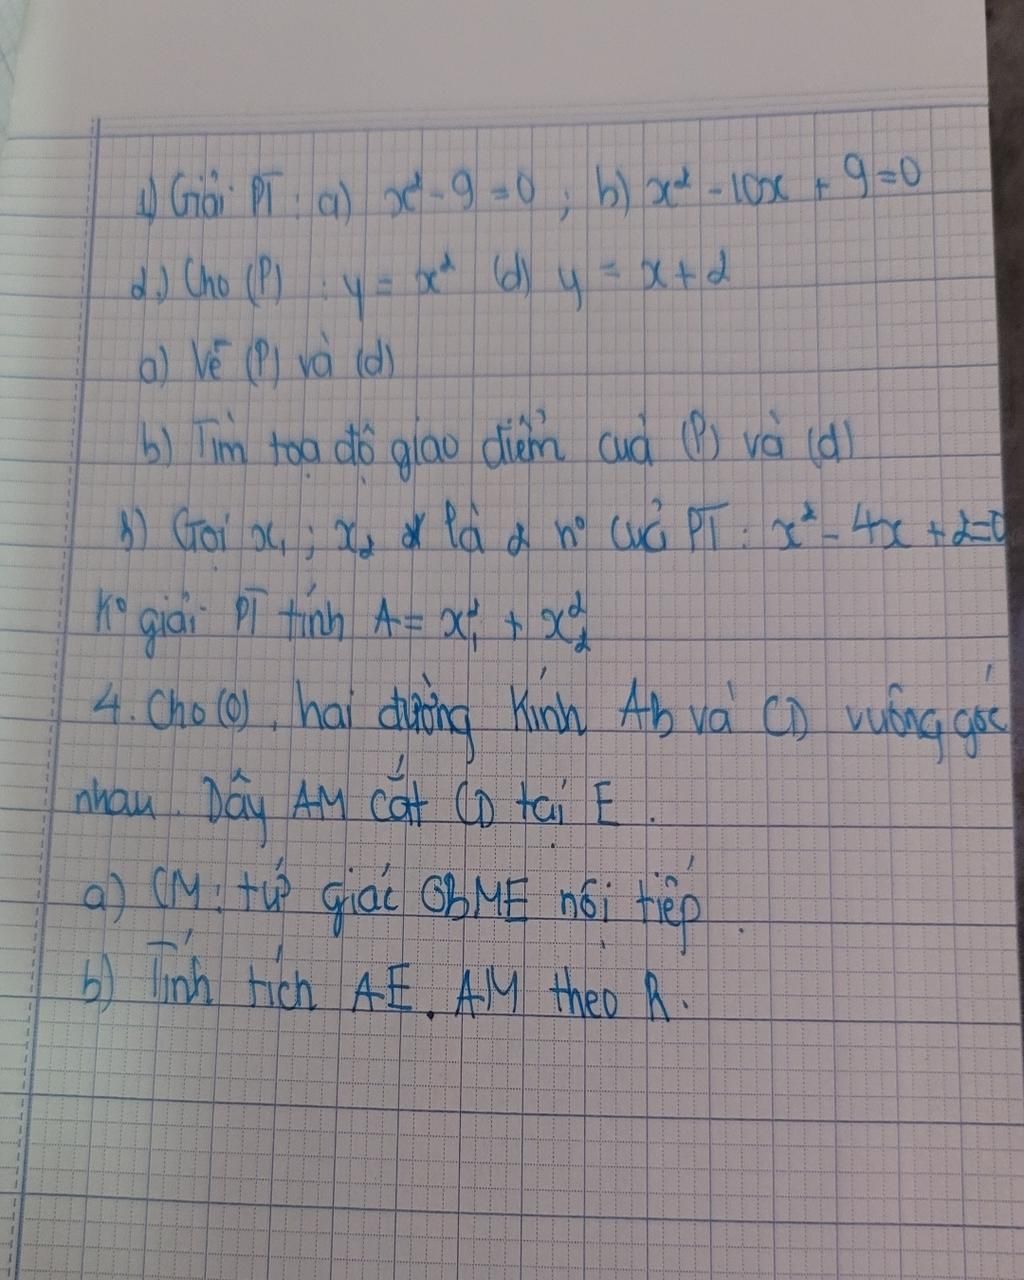 1) Giải PT: a) x² - 9 = 0 ; b) x² - 10x + 9 = 0
2.) Cho (P) : y = x² (d) y = x + 2
a) Vẽ (P) và (d)
b) Tìm toạ độ giao điểm của (P) và (d)
3) Gọi x₁ ; x₂ là 2 n° của PT : x² - 4x + 2 = 0
K° giải PT tính A = x₁² + x₂²
4. Cho (O), hai đường kính AB và CD vuông góc
nhau. Dây AM cắt CD tại E.
a) CM: tứ giác OBME nội tiếp.
b) Tính tích AE. AM theo R.